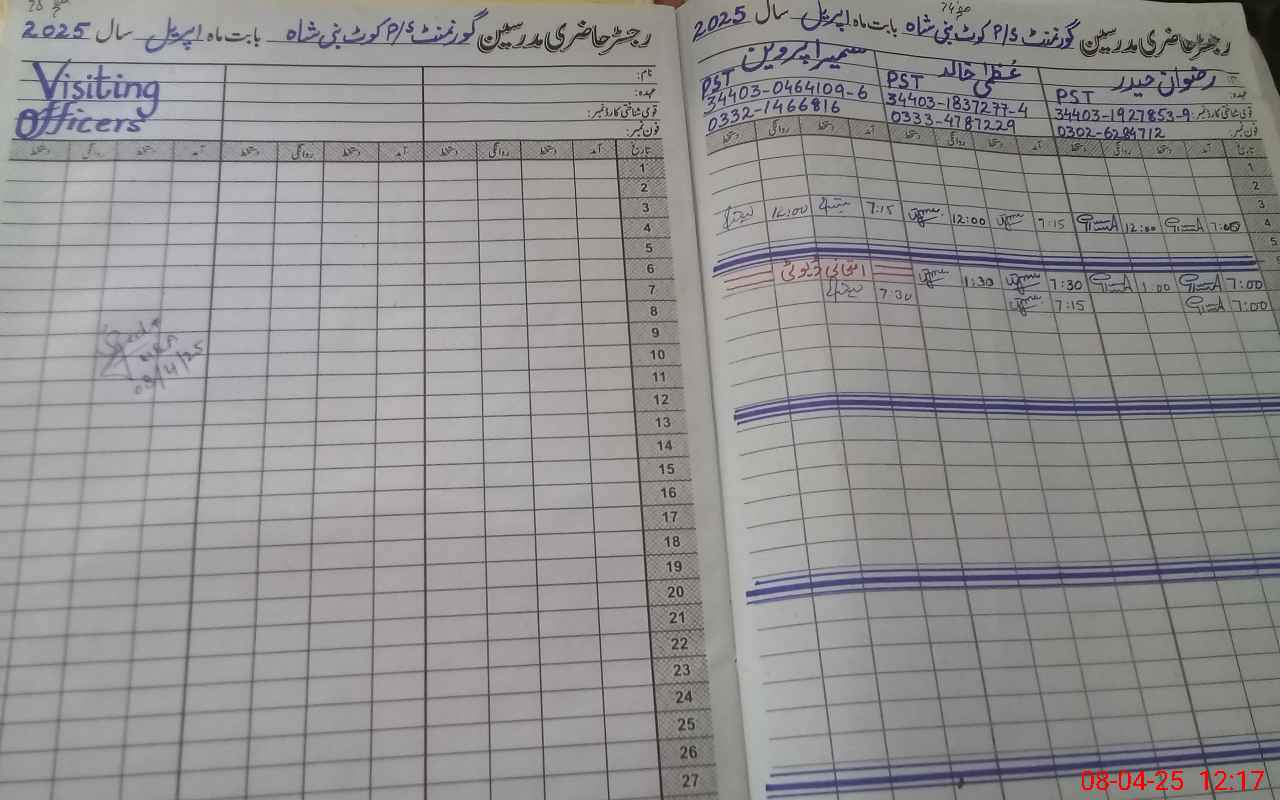 صفحہ 74
رجسٹر حاضری مدرسین گورنمنٹ P/S کوٹ بنی شاہ بابت ماہ اپریل سال 2025
رضوان حیدر عُظمٰی خالد سمیرا پروین
عہدہ: PST PST PST
قومی شناختی کارڈ نمبر: 34403-1927853-9 34403-1837277-4 34403-0464109-6
فون نمبر: 0302-6284712 0333-4787229 0332-1466816
تاریخ آمد دستخط روانگی دستخط آمد دستخط روانگی دستخط آمد دستخط روانگی دستخط
1
2
3
4 7:00 12:00 7:15 12:00 7:15 12:00
5
7:00 1:00 7:30 1:30 امتحانی ڈیوٹی
7:00 7:15 7:30
رجسٹر حاضری مدرسین گورنمنٹ P/S کوٹ بنی شاہ بابت ماہ اپریل سال 2025
نام:
عہدہ:
قومی شناختی کارڈ نمبر:
فون نمبر:
Visiting
Officers
تاریخ آمد دستخط روانگی دستخط آمد دستخط روانگی دستخط آمد دستخط روانگی دستخط
1
2
3
4
5
6
7
8
9
10
11
12
13
14
15
16
17
18
19
20
21
22
23
24
25
26
27
08/4/25
08-04-25 12:17